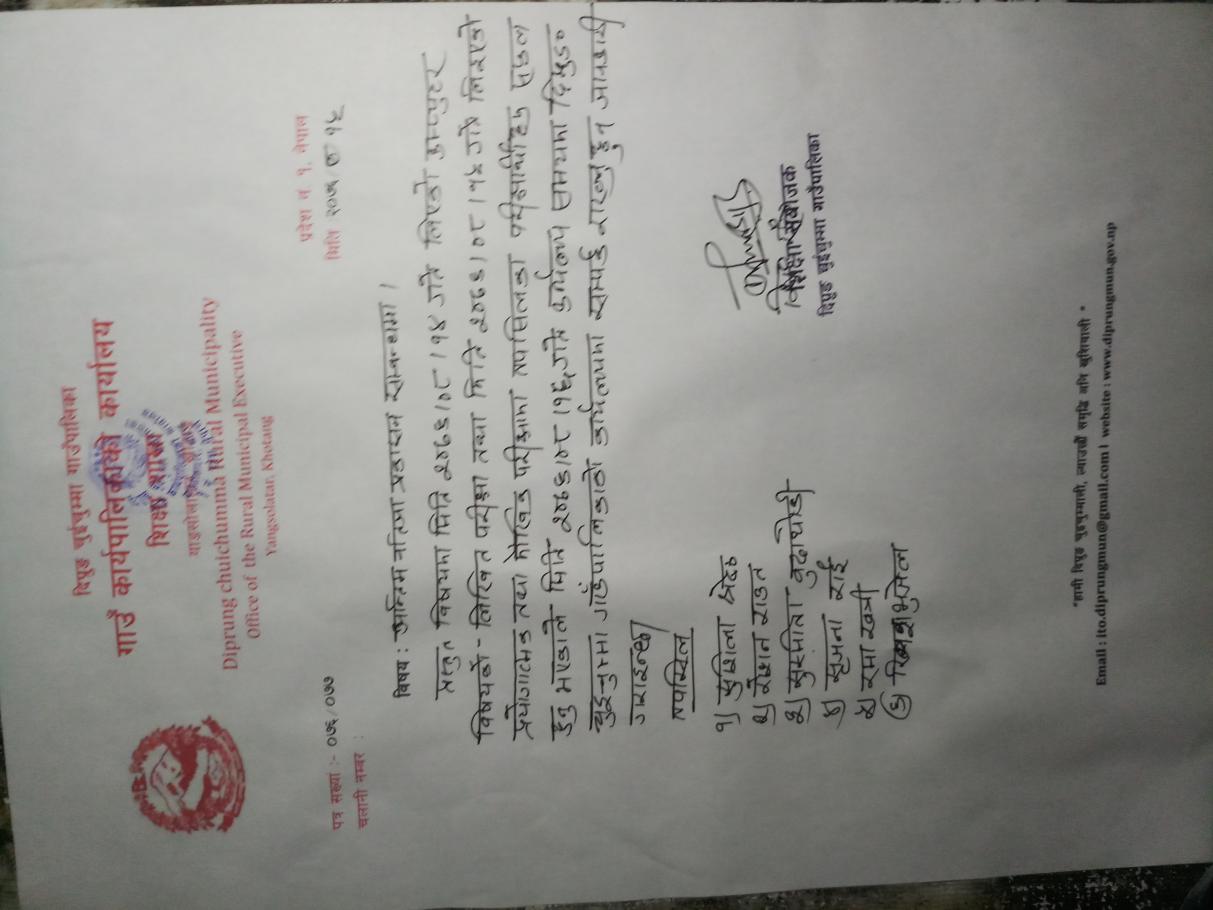 दिप्रुङ चुईचुम्मा गाउँपालिका
गाउँ कार्यपालिकाको कार्यालय
शिक्षा शाखा
Diprung chuichumma Rural Municipality
Office of the Rural Municipal Executive
Yangsolatan, Khotang
प्रदेश नं. १, नेपाल
पत्र संख्या :- ०७६/०७७
मिति २०७६ ८ १६
चलानी नम्बर :
विषय : अन्तिम नतिजा प्रकाशन सम्बन्धमा ।
प्रस्तुत विषयमा मिति २०७६।०८।१४ गते लिएको कम्प्युटर
विषयको लिखित परीक्षा तथा मिति २०७६।०८।१५ गते लिइएको
प्रयोगात्मक तथा मौखिक परीक्षामा तपसिलका परीक्षार्थीहरु सफल
हुनु भएकोले मिति २०७६।०८।१६ गते कार्यालय समयमा दिप्रुङ
चुइचुम्मा गाउँपालिकाको कार्यालयमा सम्पर्क राख्नु हुन जानकारी
गराइन्छ।
तपसिल
१) सुशिला श्रेष्ठ
२) रोशन राउत
३) सुस्मिता बुढाथोकी
४) सृजना राई
५) रमा खत्री
६) भुजेल
शिक्षा संयोजक
दिप्रुङ चुईचुम्मा गाउँपालिका
"हाम्रो दिप्रुङ चुइचुम्माली, ल्याउछौं समृद्धि अनि खुशियाली "
Email : ito.diprungmun@gmail.com | website : www.diprungmun.gov.np